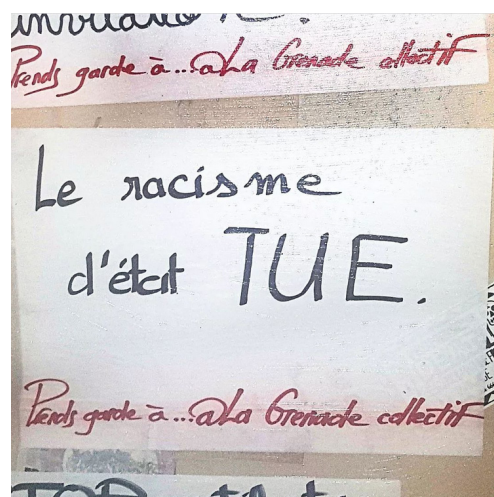 Prends garde à...@La Grenade collectif
Le racisme
d'état TUE.
Prends garde à...@La Grenade collectif